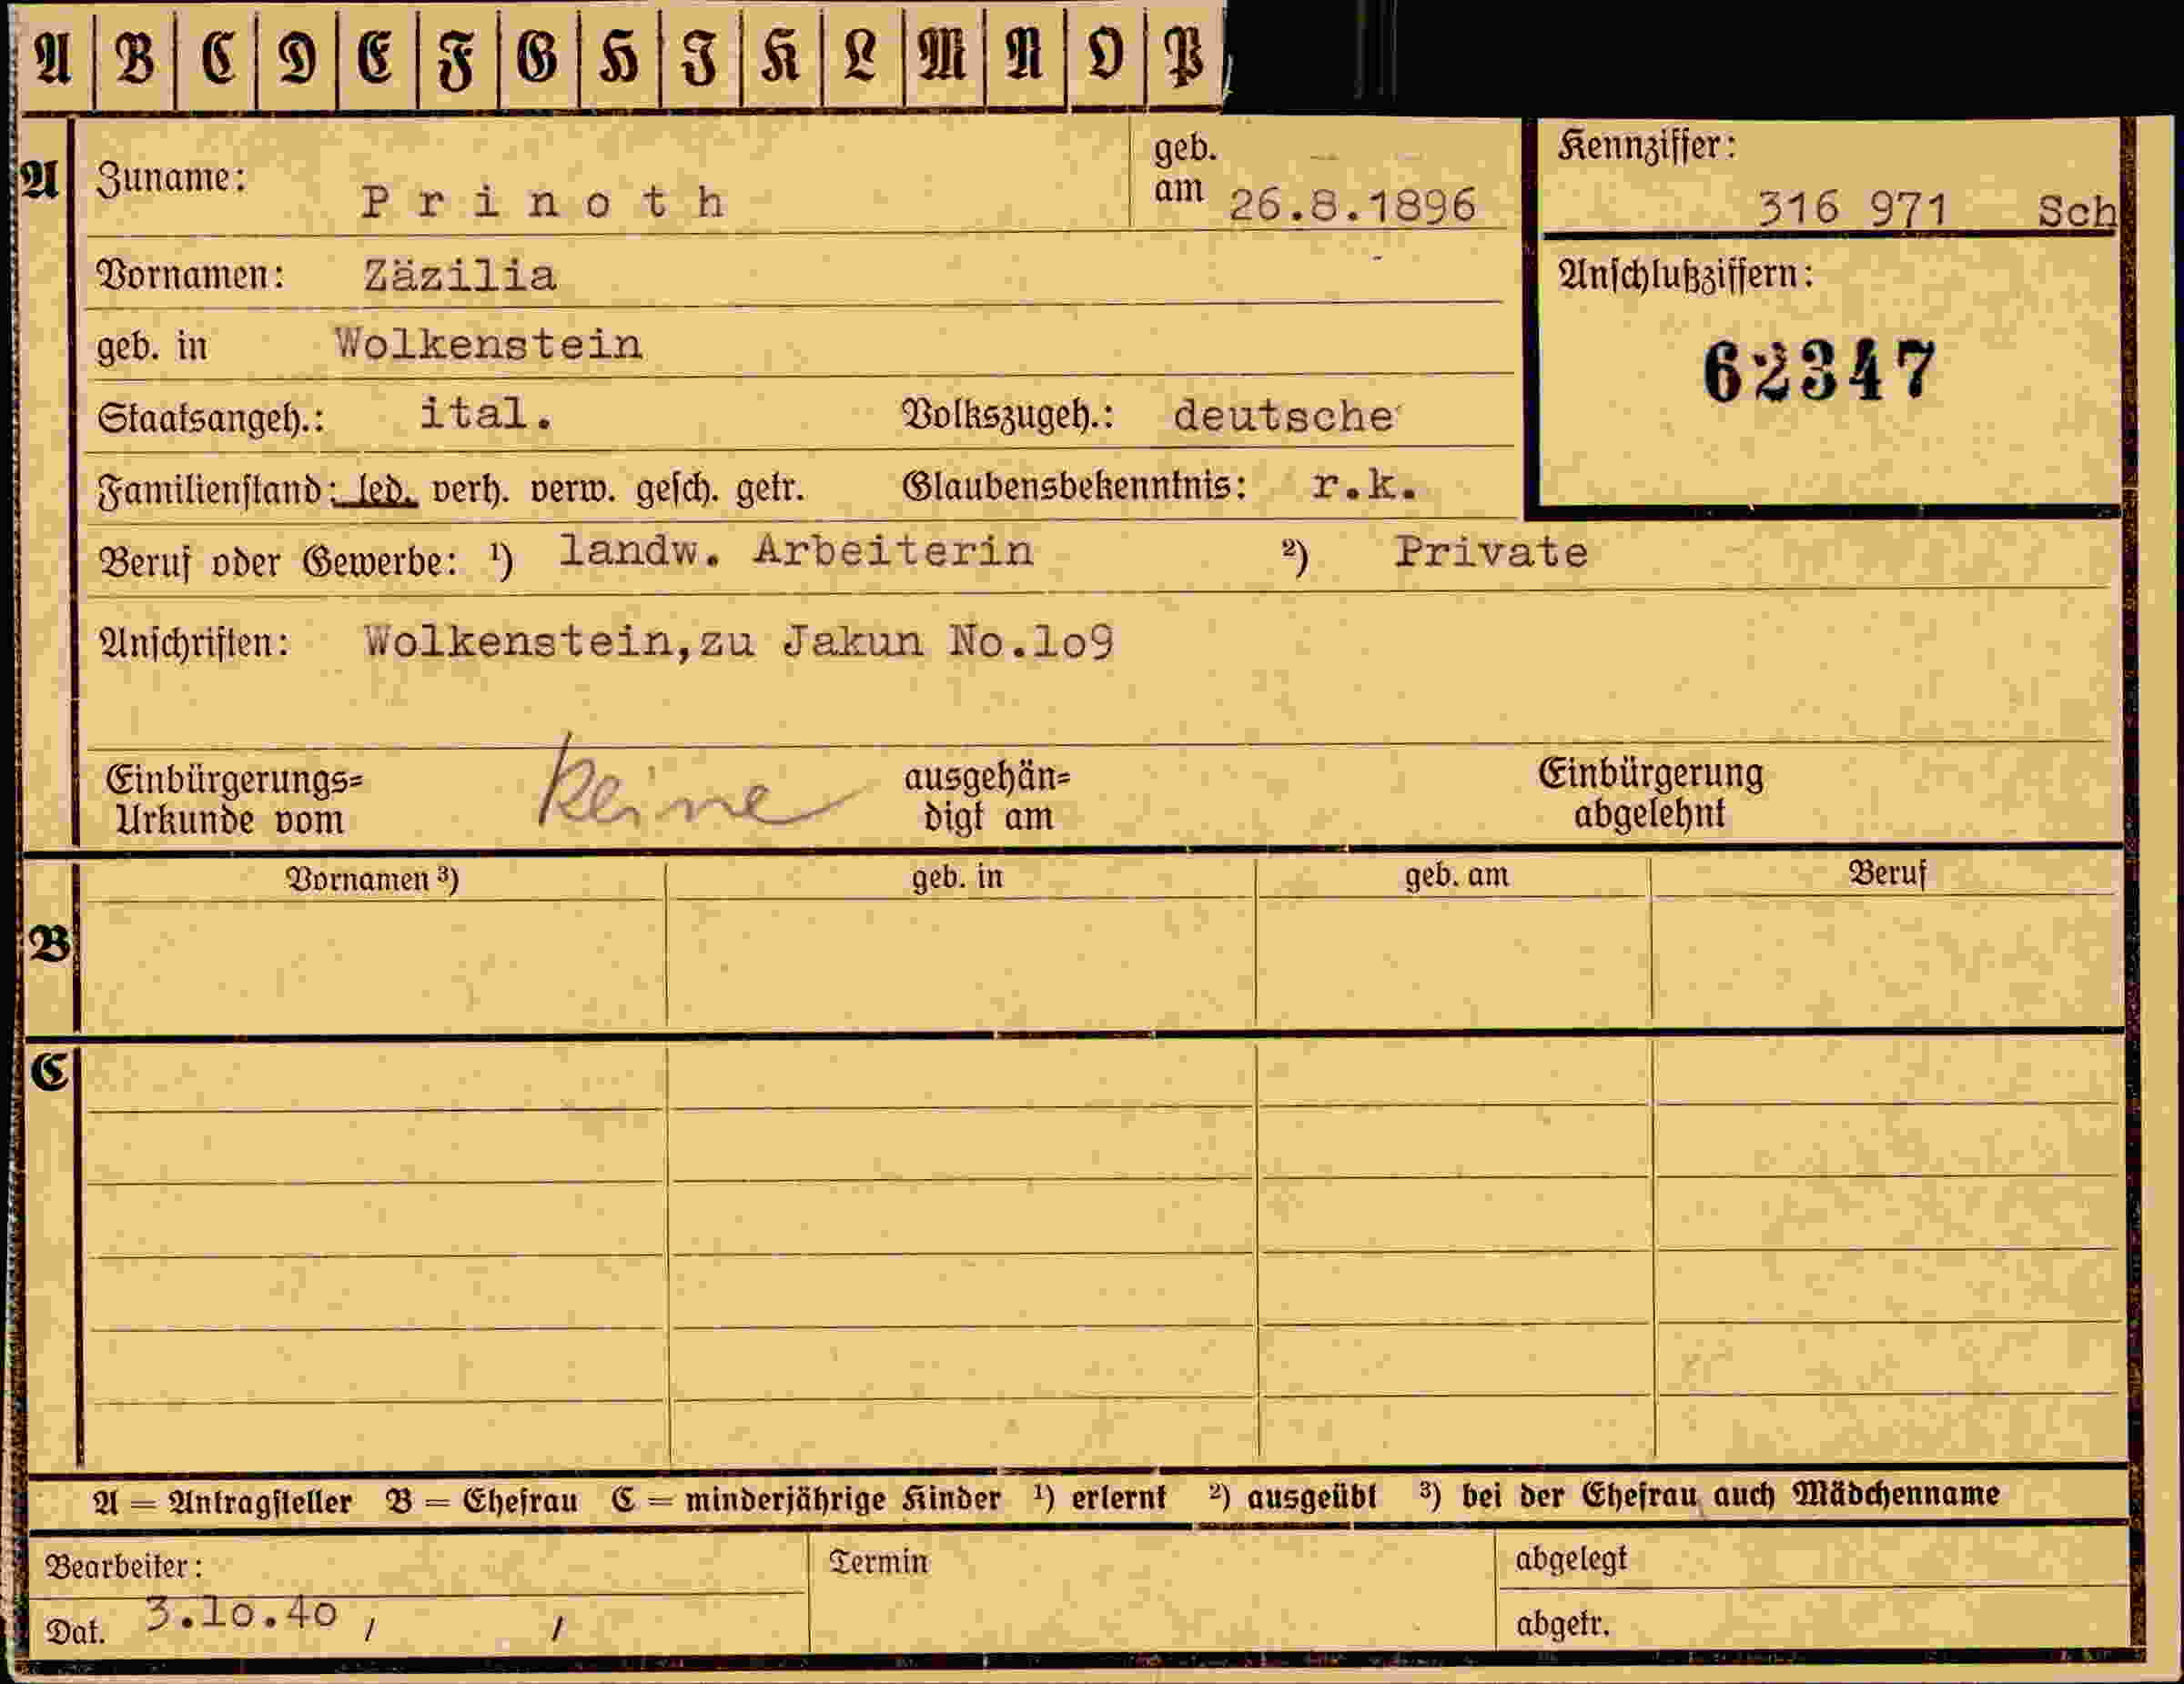 A B C D E F G H I K L M N O P
A Zuname: Prinoth geb. am 26.8.1896
Kennziffer: 316 971 Sch
Vornamen: Zäzilia
Anschlußziffern:
62347
geb. in Wolkenstein
Staatsangeh.: ital. Volkszugeh.: deutsche
Familienstand: led. verh. verw. gesch. getr. Glaubensbekenntnis: r.k.
Beruf oder Gewerbe: ¹) landw. Arbeiterin ²) Private
Anschriften: Wolkenstein,zu Jakun No.1o9
Einbürgerungs=
Urkunde vom keine
ausgehän=
digt am
Einbürgerung
abgelehnt
Vornamen ³) geb. in geb. am Beruf
B
C
A = Antragsteller B = Ehefrau C = minderjährige Kinder ¹) erlernt ²) ausgeübt ³) bei der Ehefrau auch Mädchenname
Bearbeiter: Termin abgelegt
Dat. 3.1o.40 / / abgetr.